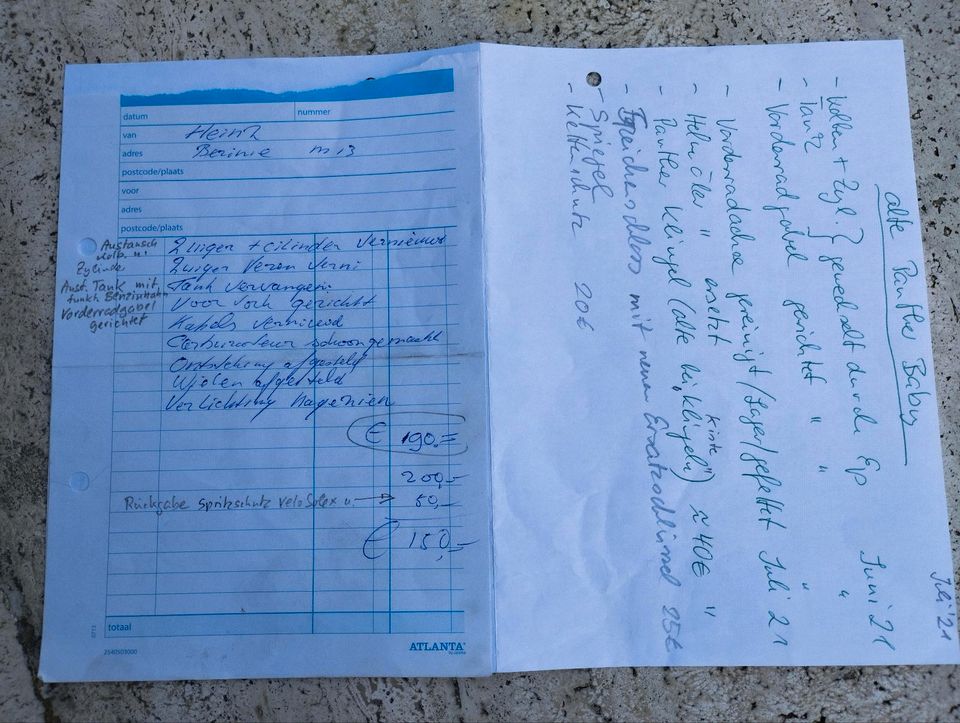 datum
nummer
van Heinz
adres Berinie M 13
postcode/plaats
voor
adres
postcode/plaats
Austausch
Kolb. u.
Zylinder
Aust. Tank mit
funkt. Benzinhahn
Vorderradgabel
gerichtet
Zuiger + cilinder vernieuwd
Zuiger veren verni
Tank vervangen
Voor vork gericht
Kabels vernieuwd
Carburateur schoongemaakt
Ontsteking afgesteld
Wielen afgesteld
Verlichting nagezien
€ 190,=
200,-
Rückgabe Spritzschutz VeloSolex u. → 50,-
€ 150,-
totaal
2540503000
ATLANTA
Juli '21
alte Panther Baby
- Kolben + Zyl } gewechselt durch Juni 21
- Tank
- Vorderradgabel gerichtet " "
- Vorderradachse gereinigt / Lager / gefettet Juli 21
- Hebel ersetzt "
- Panther Klingel (alte Klingeln) ≈ 40€ "
- Speichenschloss mit neuem Ersatzschlüssel 25€
- Spiegel 20€
- Kettenschutz